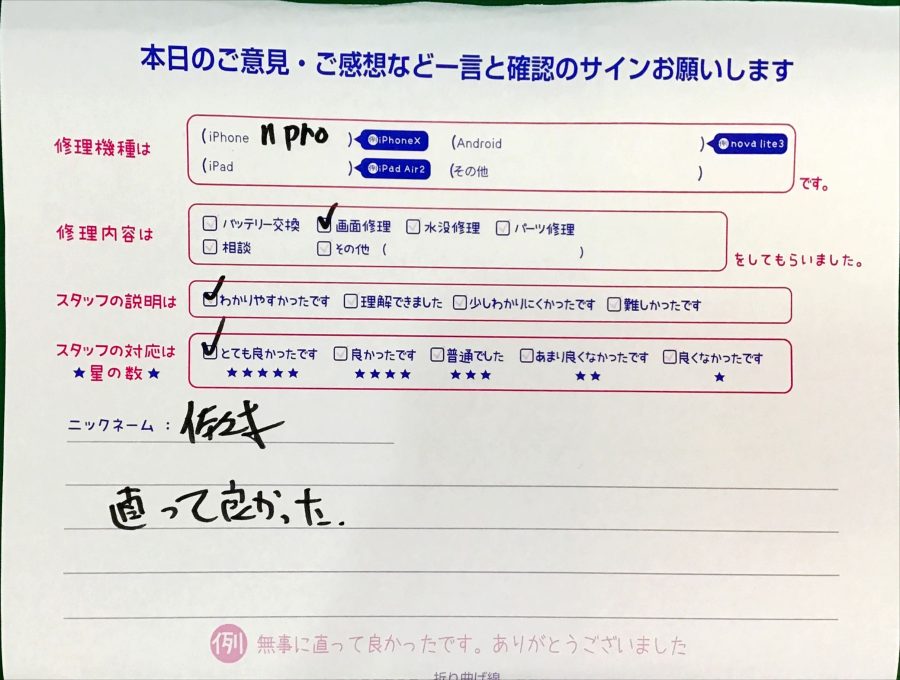 本日のご意見・ご感想など一言と確認のサインお願いします
修理機種は (iPhone 11 pro ) 例iPhoneX (Android ) 例nova lite3
(iPad ) 例iPad Air2 (その他 ) です。
修理内容は バッテリー交換 画面修理 水没修理 パーツ修理
相談 その他 ( ) をしてもらいました。
スタッフの説明は わかりやすかったです 理解できました 少しわかりにくかったです 難しかったです
スタッフの対応は とても良かったです 良かったです 普通でした あまり良くなかったです 良くなかったです
★星の数★ ★★★★★ ★★★★ ★★★ ★★ ★
ニックネーム：
直って良かった.
例 無事に直って良かったです。ありがとうございました
折り曲げ線